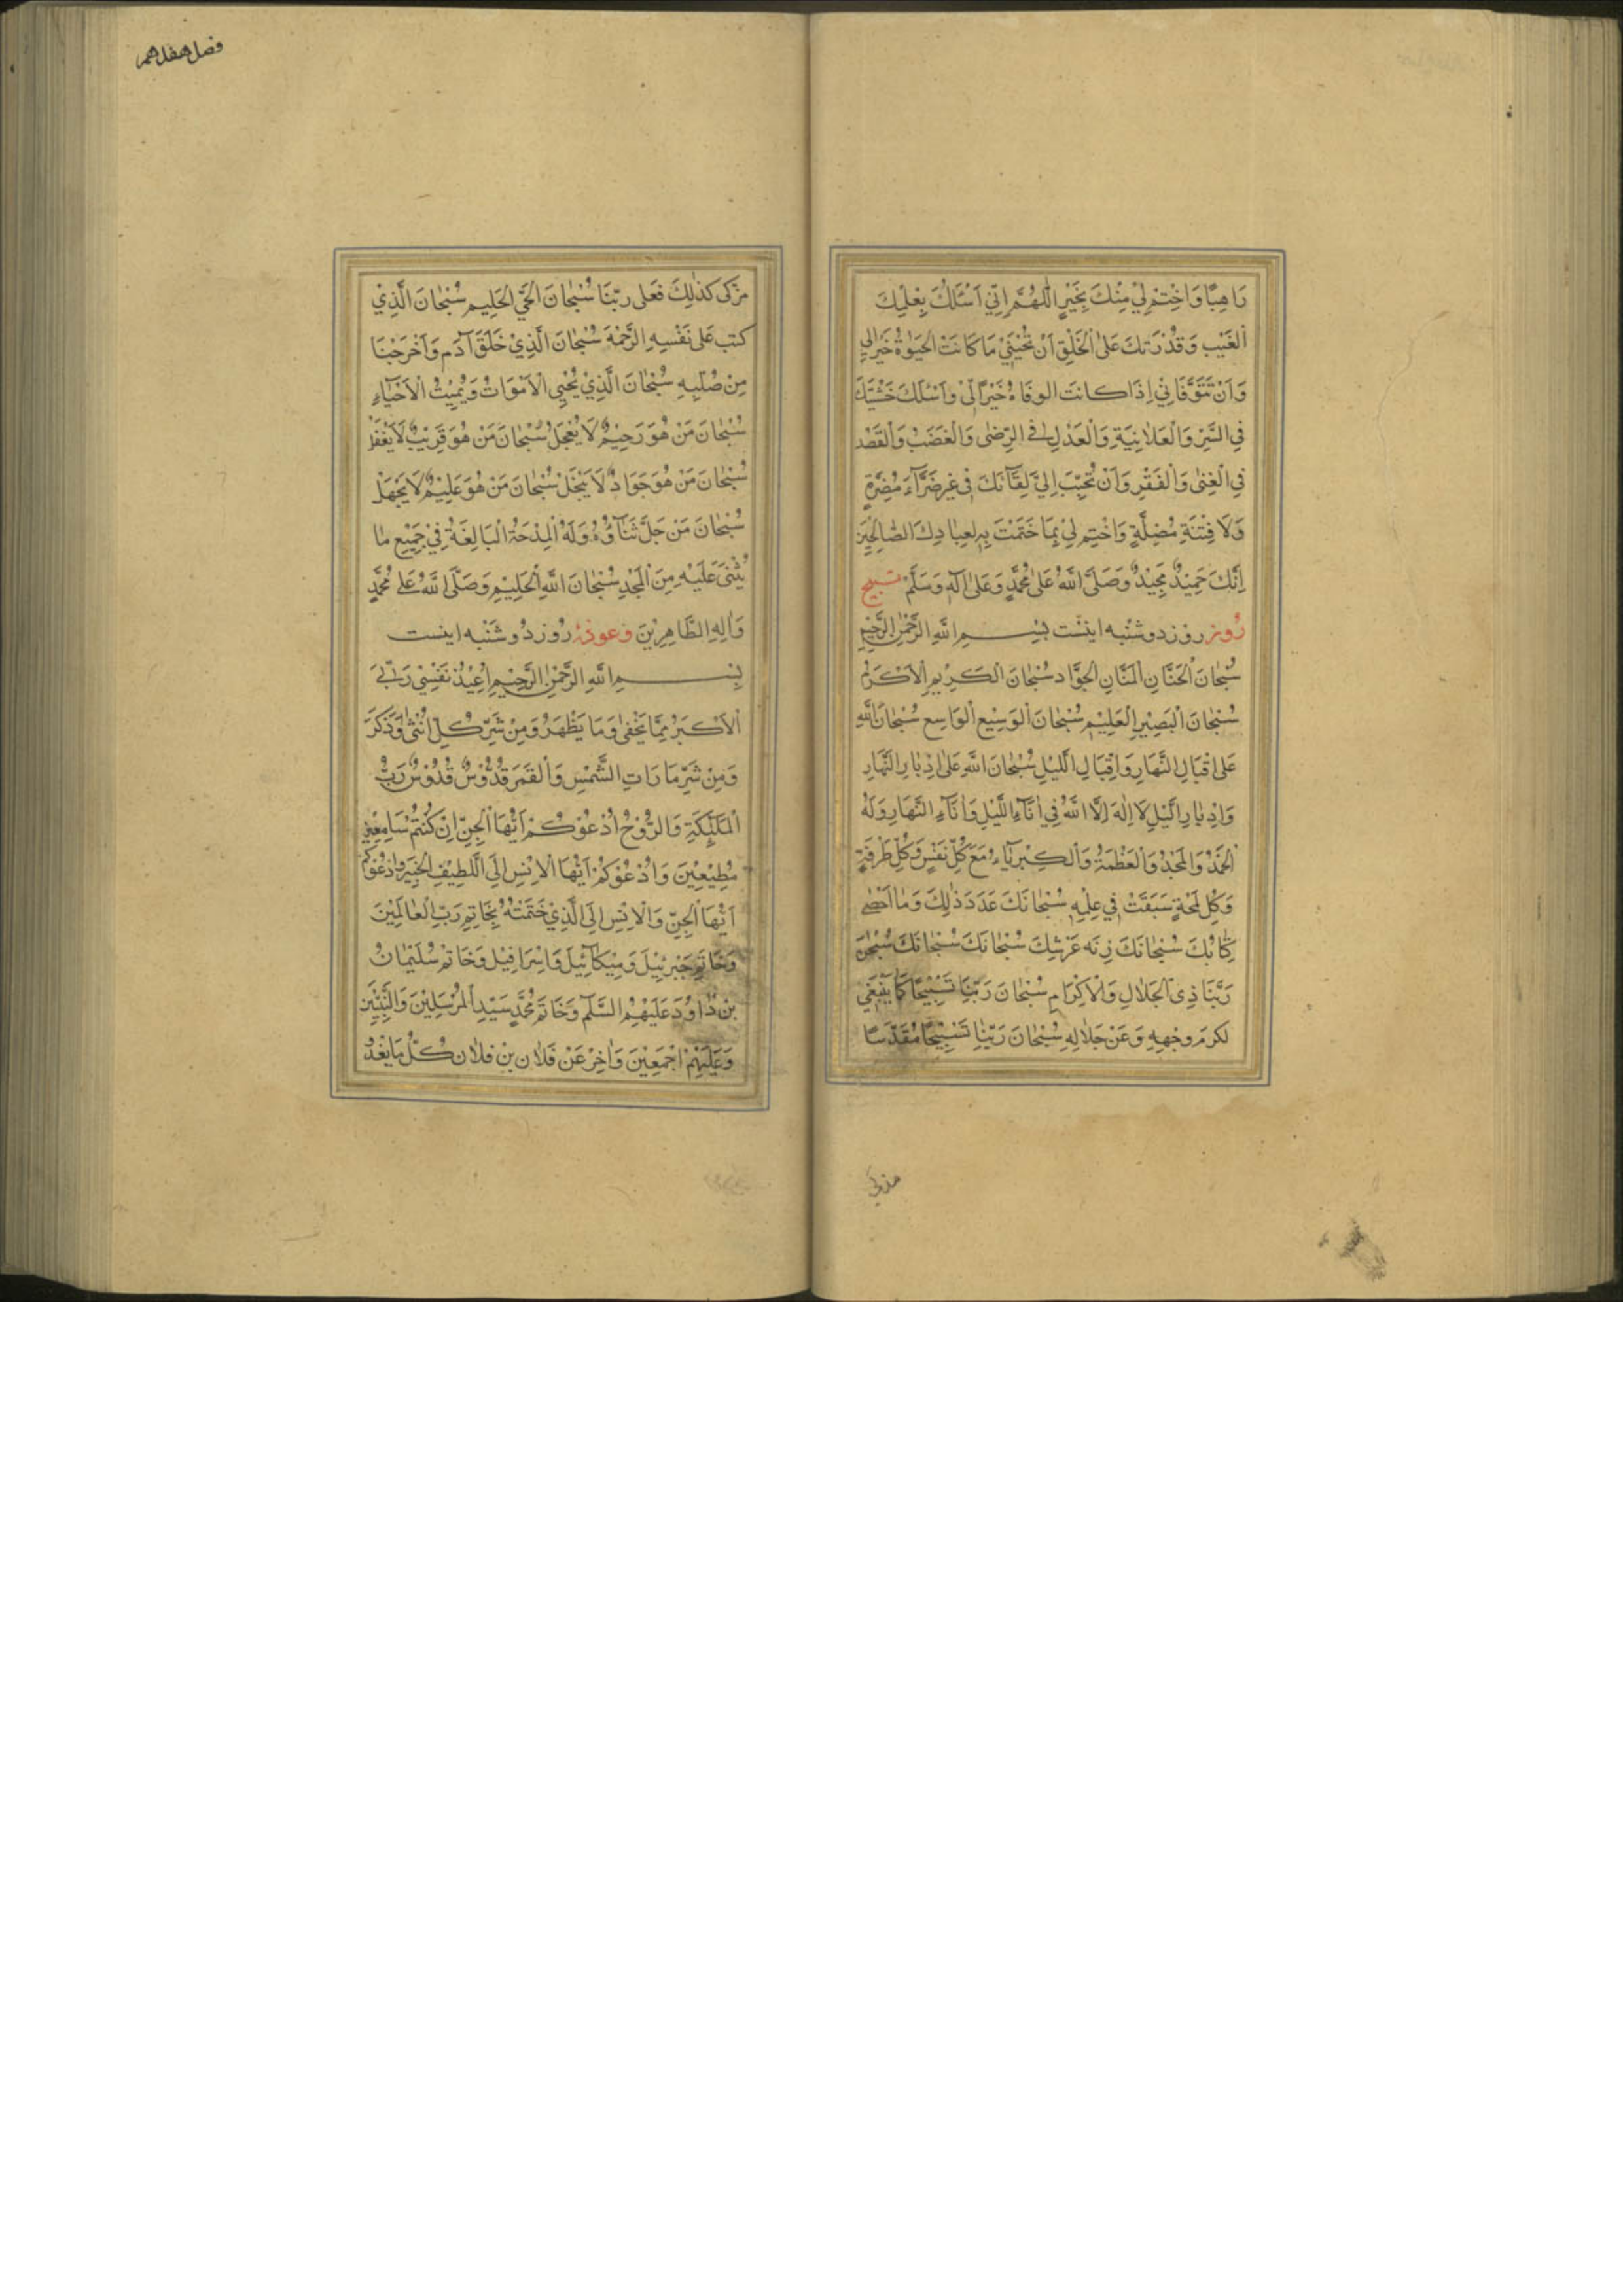 رَاهِبًا وَاخْتِمْ لِيْ مِنْكَ بِخَيْرٍ اَللّٰهُمَّ اِنِّيْ اَسْئَلُكَ بِعِلْمِكَ
الْغَيْبَ وَقُدْرَتِكَ عَلَى الْخَلْقِ اَنْ تُحْيِنِيْ مَا كَانَتِ الْحَيٰوةُ خَيْرًا لِيْ
وَاَنْ تَتَوَفَّانِيْ اِذَا كَانَتِ الوفَاةُ خَيْرًا لِيْ وَاَسْئَلُكَ خَشْيَتَكَ
فِي السِّرِّ وَالْعَلَانِيَةِ وَالْعَدْلَ فِي الرِّضٰى وَالْغَضَبِ وَالْقَصْدَ
فِي الْغِنٰى وَالْفَقْرِ وَاَنْ تُحَبِّبَ اِلَيَّ لِقَآئَكَ فِيْ غَيْرِ ضَرَّآءَ مُضِرَّةٍ
وَلَا فِتْنَةٍ مُضِلَّةٍ وَاخْتِمْ لِيْ بِمَا خَتَمْتَ بِهِ لِعِبَادِكَ الصَّالِحِيْنَ
اِنَّكَ حَمِيْدٌ مَجِيْدٌ وَصَلَّى اللّٰهُ عَلٰى مُحَمَّدٍ وَعَلٰى اٰلِهِ وَسَلَّمَ تسبيح
روز روز دوشنبه اينست بِسْمِ اللّٰهِ الرَّحْمٰنِ الرَّحِيْمِ
سُبْحَانَ الْحَنَّانِ الْمَنَّانِ الْجَوَّادِ سُبْحَانَ الْكَرِيْمِ الْاَكْرَمِ
سُبْحَانَ الْبَصِيْرِ الْعَلِيْمِ سُبْحَانَ الْوَسِيْعِ الْوَاسِعِ سُبْحَانَ اللّٰهِ
عَلٰى اِقْبَالِ النَّهَارِ وَاِقْبَالِ الَّليْلِ سُبْحَانَ اللّٰهِ عَلٰى اِدْبَارِ النَّهَارِ
وَاِدْبَارِ الَّيْلِ لَا اِلٰهَ اِلَّا اللّٰهُ فِيْ اٰنَآءِ اللَّيْلِ وَاٰنَآءِ النَّهَارِ وَلَهُ
الْحَمْدُ وَالْمَجْدُ وَالْعَظْمَةُ وَالْكِبْرِيَآءُ مَعَ كُلِّ نَفَسٍ وَكُلِّ طَرْفَةٍ
وَكُلِّ لَمْحَةٍ سَبَقَتْ فِيْ عِلْمِهِ سُبْحَانَكَ عَدَدَ ذٰلِكَ وَمَا اَحْصٰى
كِتَابُكَ سُبْحَانَكَ زِنَه عَرْشِكَ سُبْحَانَكَ سُبْحَانَكَ سُبْحٰنَ
رَبِّنَا ذِي الْجَلَالِ وَالْاِكْرَامِ سُبْحَانَ رَبِّنَا تَسْبِيْحًا كَمَا يَنْبَغِيْ
لكرم وجهِهِ وَعَنْ جَلَالِهِ سُبْحَانَ رَبِّنَا تَسْبِيْحًا مُقَدَّسًا
مزكى
فصل هفدهم
مزكى كَذٰلِكَ فَعَلَ رَبُّنَا سُبْحَانَ الْحَيِّ الْحَلِيْمِ سُبْحَانَ الَّذِيْ
كَتَبَ عَلٰى نَفْسِهِ الرَّحْمَةَ سُبْحَانَ الَّذِيْ خَلَقَ آدَمَ وَاَخْرَجْنَا
مِنْ صُلْبِهِ سُبْحَانَ الَّذِيْ يُحْيِي الْاَمْوَاتَ وَيُمِيْتُ الْاَحْيَآءَ
سُبْحَانَ مَنْ هُوَ رَحِيْمٌ لَا يَعْجَلُ سُبْحَانَ مَنْ هُوَ قَرِيْبٌ لَا يَغْفَلُ
سُبْحَانَ مَنْ هُوَ جَوَادٌ لَا يَبْخَلُ سُبْحَانَ مَنْ هُوَ عَلِيْمٌ لَا يَجْهَلُ
سُبْحَانَ مَنْ جَلَّ ثَنَآؤُهُ وَلَهُ الْمِدْحَةُ الْبَالِغَةُ فِيْ جَمِيْعِ مَا
يُثْنٰى عَلَيْهِ مِنَ الْمَجْدِ سُبْحَانَ اللّٰهِ الْحَلِيْمِ وَصَلَّى اللّٰهُ عَلٰى مُحَمَّدٍ
وَاٰلِهِ الطَّاهِرِيْنَ وعوذهٔ روز دوشنبه اينست
بِسْمِ اللّٰهِ الرَّحْمٰنِ الرَّحِيْمِ اُعِيْذُ نَفْسِيْ بِرَبِّيَ
الْاَكْبَرِ مِمَّا يَخْفٰى وَمَا يَظْهَرُ وَمِنْ شَرِّ كُلِّ اُنْثٰى وَذَكَرَ
وَمِنْ شَرِّ مَا رَاَتِ الشَّمْسُ وَالْقَمَرَ قُدُّوْسٌ قُدُّوْسٌ رَبُّ
الْمَلٰئِكَةِ وَالرُّوْحِ اَدْعُوْكُمْ اَيُّهَا الْجِنُّ اِنْ كُنْتُمْ سَامِعِيْنَ
مُطِيْعِيْنَ وَاَدْعُوْكُمْ اَيُّهَا الْاِنْسُ اِلَى اللَّطِيْفِ الْخَبِيْرِ وَاَدْعُوْكُمْ
اَيُّهَا الْجِنُّ وَالْاِنْسُ اِلَى الَّذِيْ خَتَمْتُهُ بِخَاتَمِ رَبِّ الْعَالَمِيْنَ
وَخَاتَمِ جَبْرَئِيْلَ وَمِيْكَآئِيْلَ وَاِسْرَافِيْلَ وَخَاتَمِ سُلَيْمٰانَ
بْنِ دَاوُدَ عَلَيْهِمُ السَّلَامُ وَخَاتَمِ مُحَمَّدٍ سَيِّدِ الْمُرْسَلِيْنَ وَالنَّبِيِّيْنَ
وَعَلَيْهِمْ اَجْمَعِيْنَ وَاخِرْ عَنْ فُلَانِ بْنِ فُلَانٍ كُلَّ مَا يَغْدُ